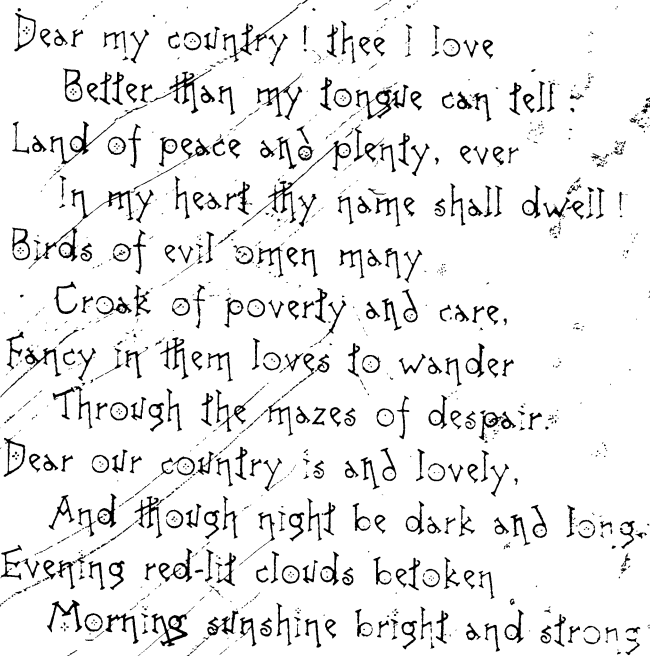 Dear my country ! thee I love
Better than my tongue can tell :
Land of peace and plenty, ever
In my heart thy name shall dwell !
Birds of evil omen many
Croak of poverty and care,
Fancy in them loves to wander
Through the mazes of despair.
Dear our country is and lovely,
And though night be dark and long,
Evening red-lit clouds betoken
Morning sunshine bright and strong